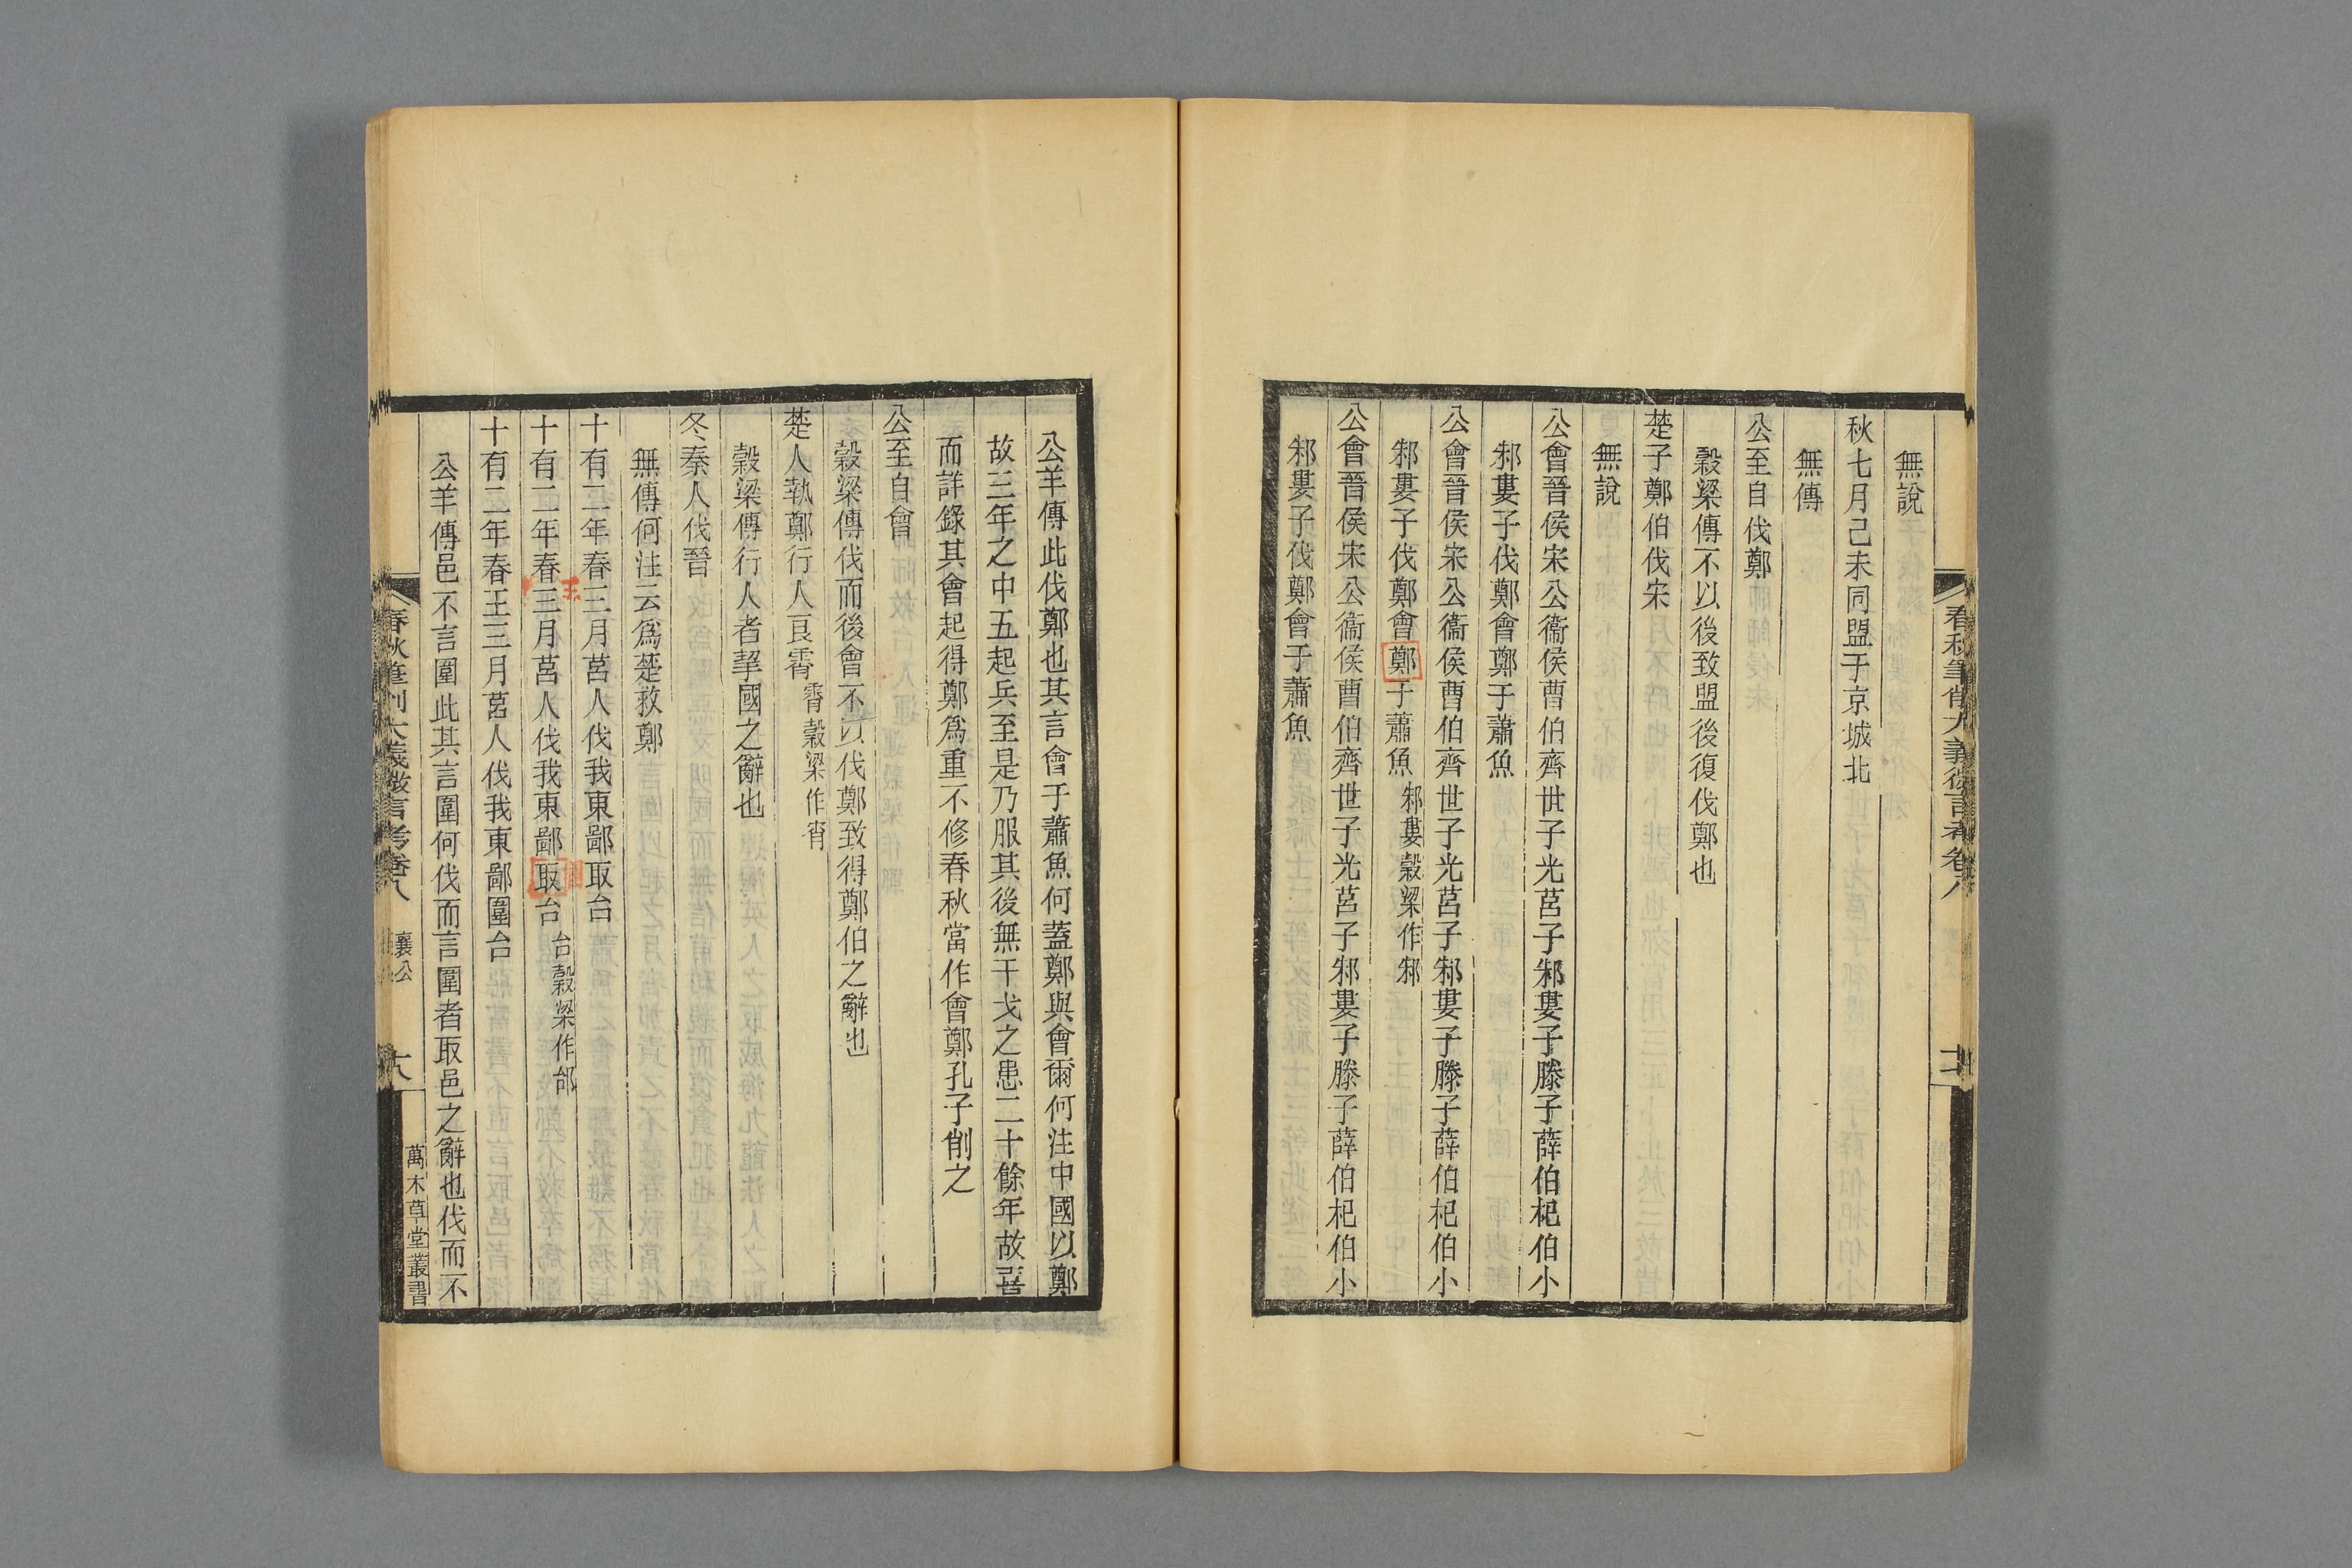 無說
秋七月己未同盟于京城北
無傳
公至自伐鄭
穀梁傳不以後致盟後復伐鄭也
楚子鄭伯伐宋
無說
公會晉侯宋公衞侯曹伯齊世子光莒子邾婁子滕子薛伯杞伯小
邾婁子伐鄭會鄭于蕭魚
公會晉侯宋公衞侯曹伯齊世子光莒子邾婁子滕子薛伯杞伯小
邾婁子伐鄭會鄭于蕭魚邾婁穀梁作邾
公會晉侯宋公衞侯曹伯齊世子光莒子邾婁子滕子薛伯杞伯小
邾婁子伐鄭會于蕭魚
公羊傳此伐鄭也其言會于蕭魚何蓋鄭與會爾何注中國以鄭
故三年之中五起兵至是乃服其後無干戈之患二十餘年故喜
而詳錄其會起得鄭爲重不修春秋當作會鄭孔子削之
公至自會
穀梁傳伐而後會不以伐鄭致得鄭伯之辭也
楚人執鄭行人良霄霄穀梁作宵
穀梁傳行人者挈國之辭也
冬秦人伐晉
無傳何注云爲楚救鄭
十有二年春三月莒人伐我東鄙取台
王
十有二年春三月莒人伐我東鄙取台台穀梁作邰
圍
十有二年春王三月莒人伐我東鄙圍台
公羊傳邑不言圍此其言圍何伐而言圍者取邑之辭也伐而不
春秋筆削大義微言考卷八
襄公
十八
萬木草堂叢書